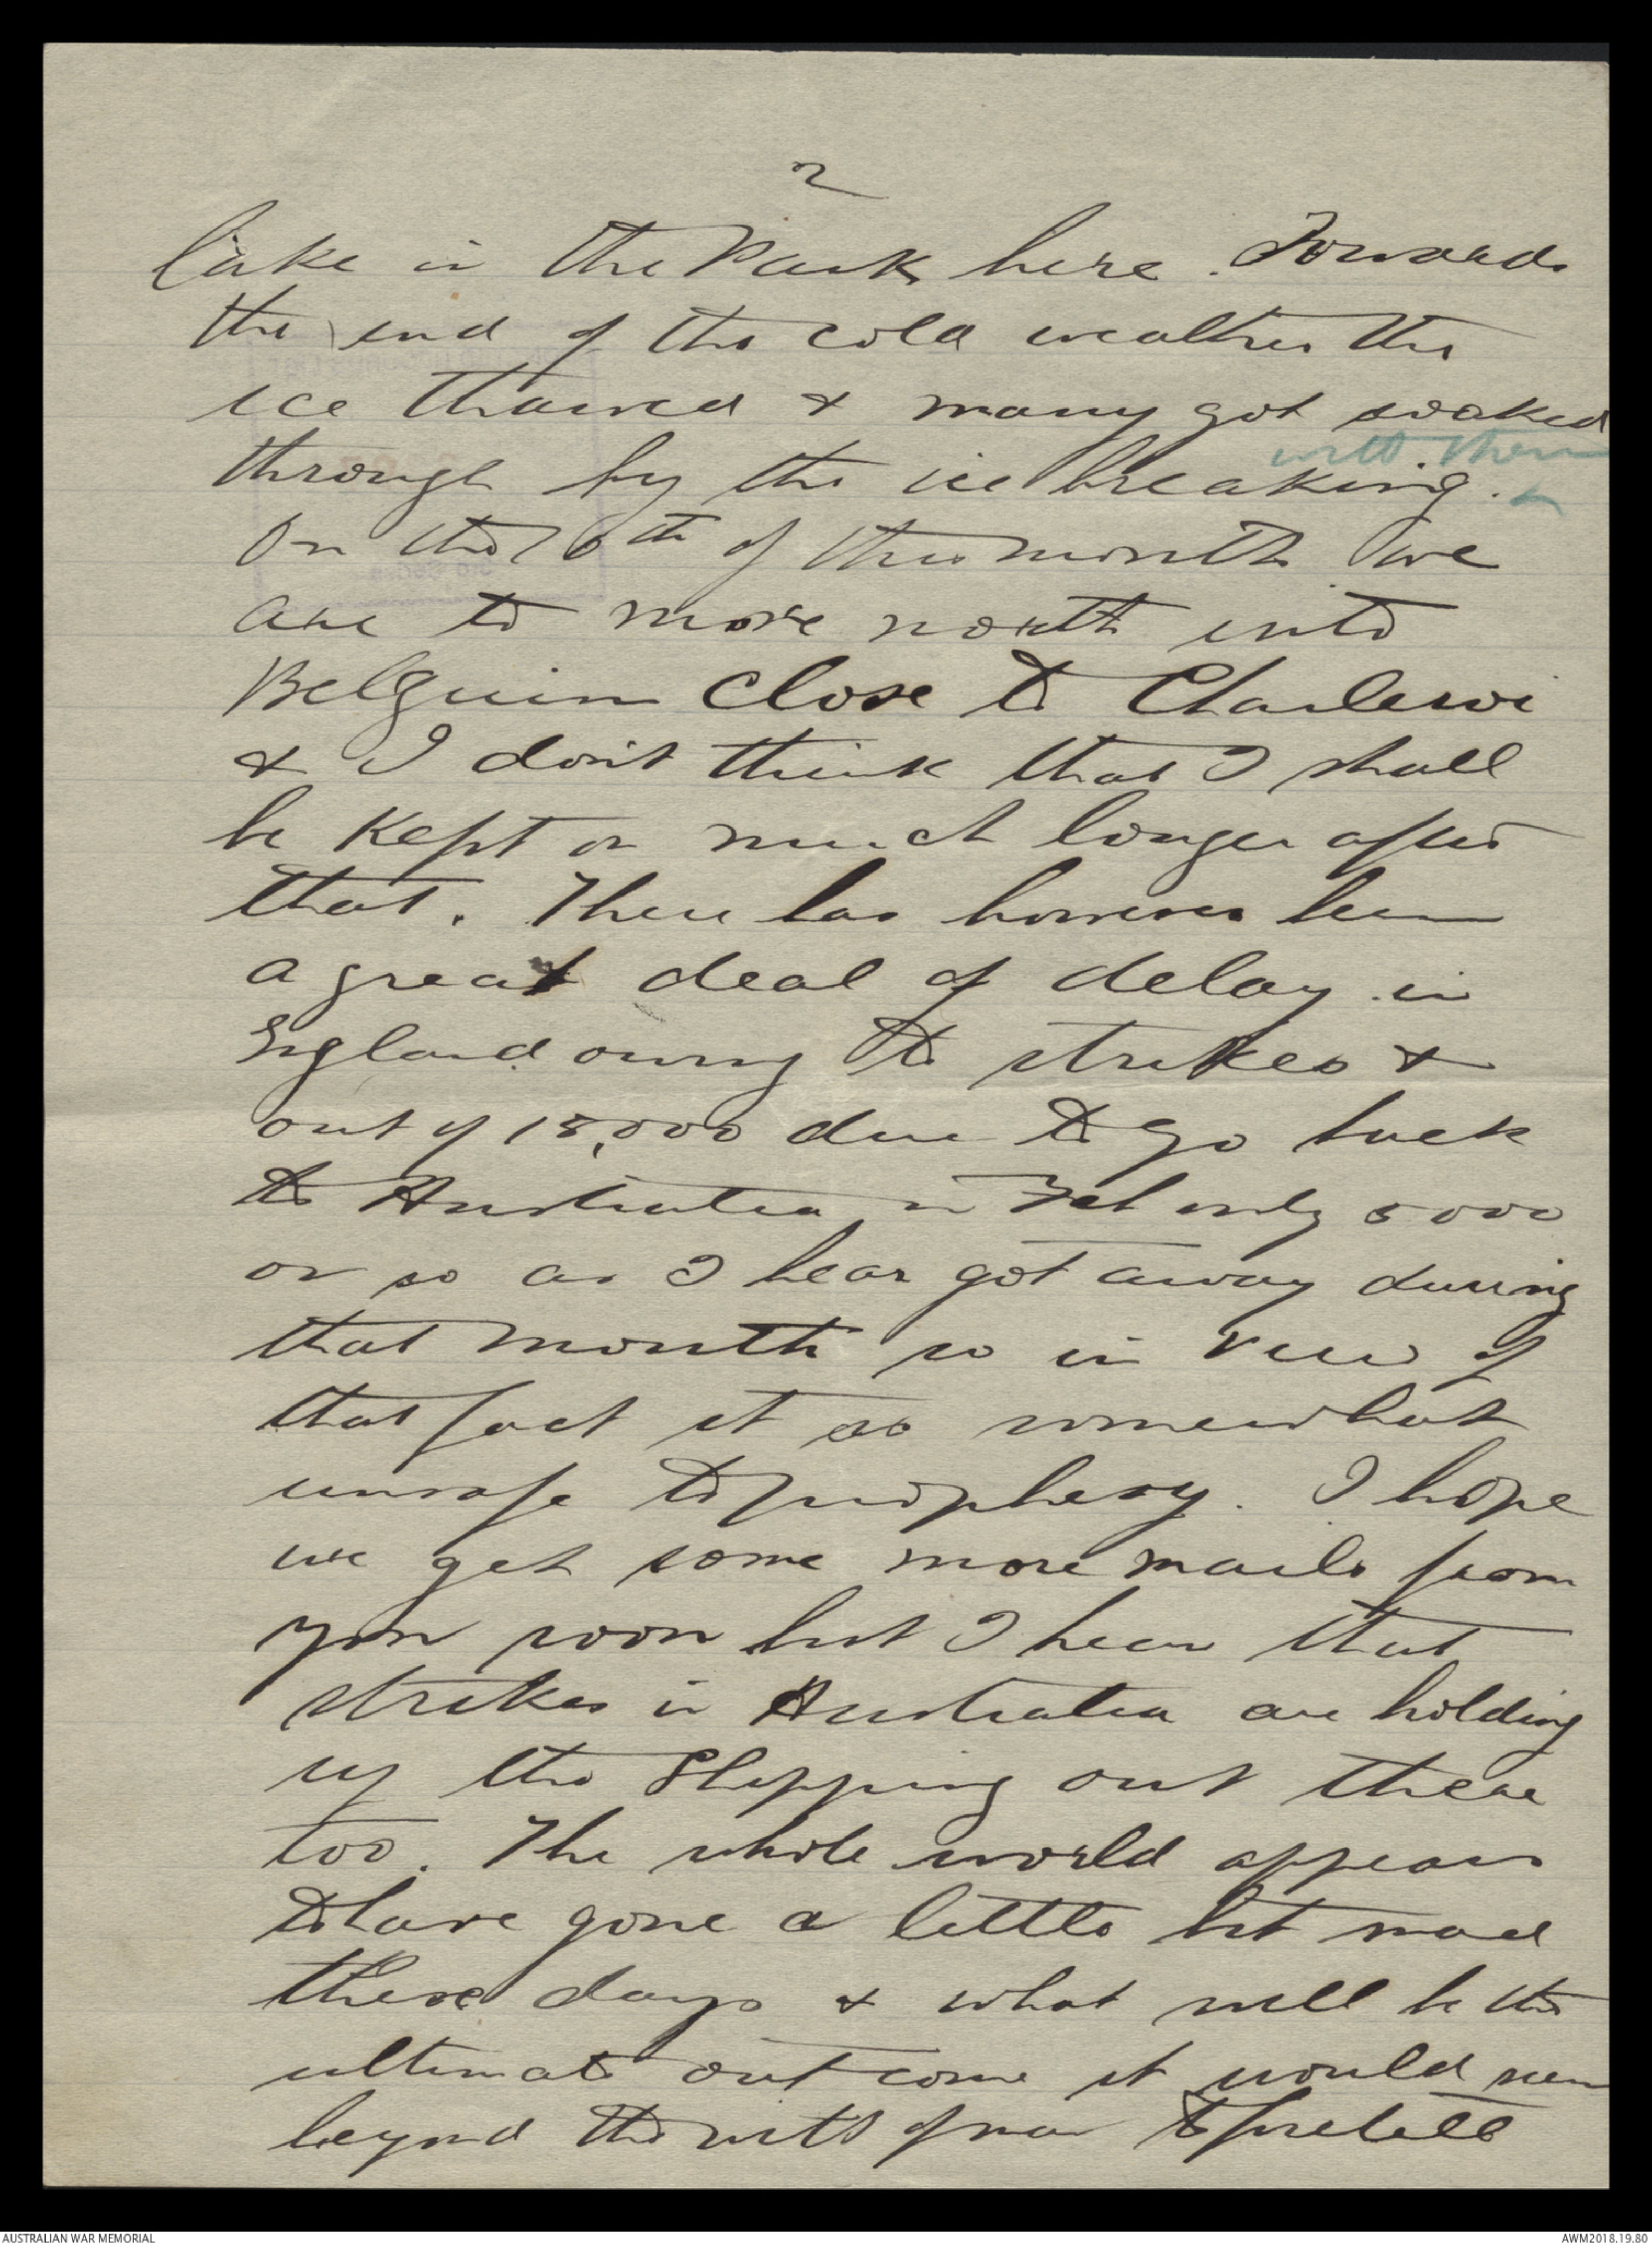 2
Lake in the Park here. Towards
the end of the cold weather the
ice thawed & many got soaked
with them
through by the ice breaking.
On the 16th of this month we
are to move north into
Belguim close to Charleroi
& I don't think that I shall
be kept on much longer after
that. There has however been
a great deal of delay in
England owing to strikes &
out of 15,000 due to go back
to Australia in Feb only 5000
or so as I hear got away during
that month so in view of
that fact it is somewhat
unsafe to prophesy. I hope
we get some more mails from
you soon but I hear that
strikes in Australia are holding
up the Shipping out there
too. The whole world appears
to have gone a little bit mad
these days & what will be the
ultimate outcome it would seem
beyond the wits of man to foretell
AUSTRALIAN WAR MEMORIAL
AWM2018.19.80